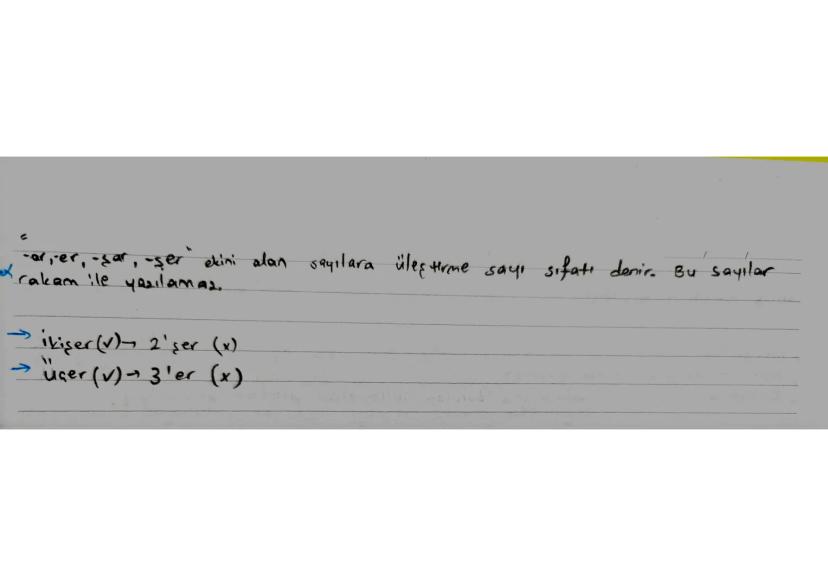 "-ar, -er, -şar, -şer" ekini alan sayılara üleştirme sayı sıfatı denir. Bu sayılar
rakam ile yazılamaz.
→ ikişer (v) → 2'şer (x)
→ üçer (v) → 3'er (x)